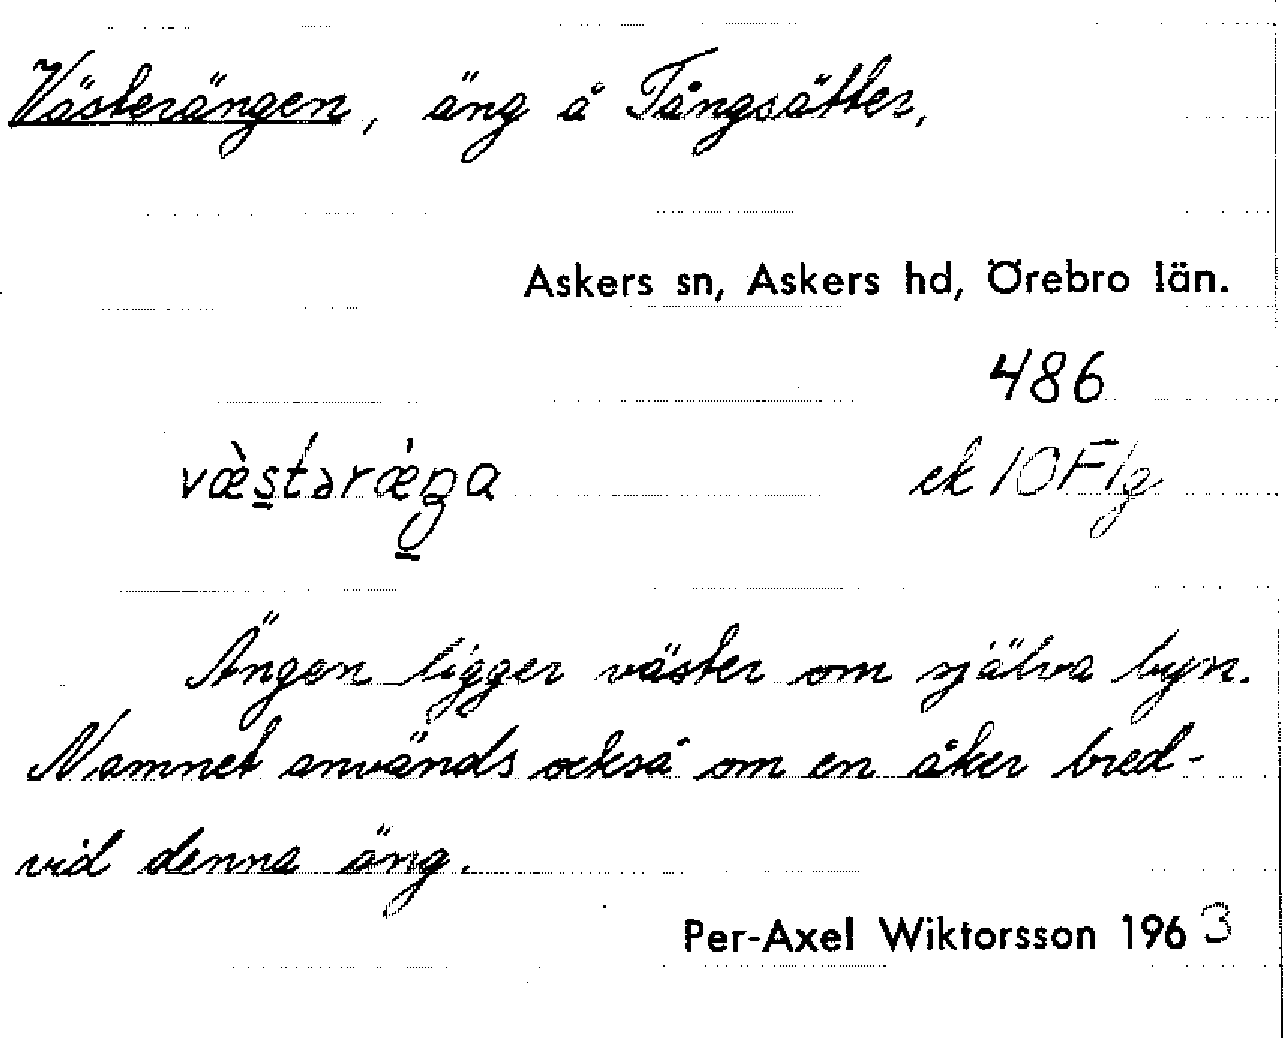 Västerängen, äng å Tångsätter,
Askers sn, Askers hd, Örebro län.
486
væ̀s̲tərǽŋ̲a
ek 10 F 1g
Ängen ligger väster om själva byn.
Namnet används också om en åker bred-
vid denna äng.
Per-Axel Wiktorsson 1963